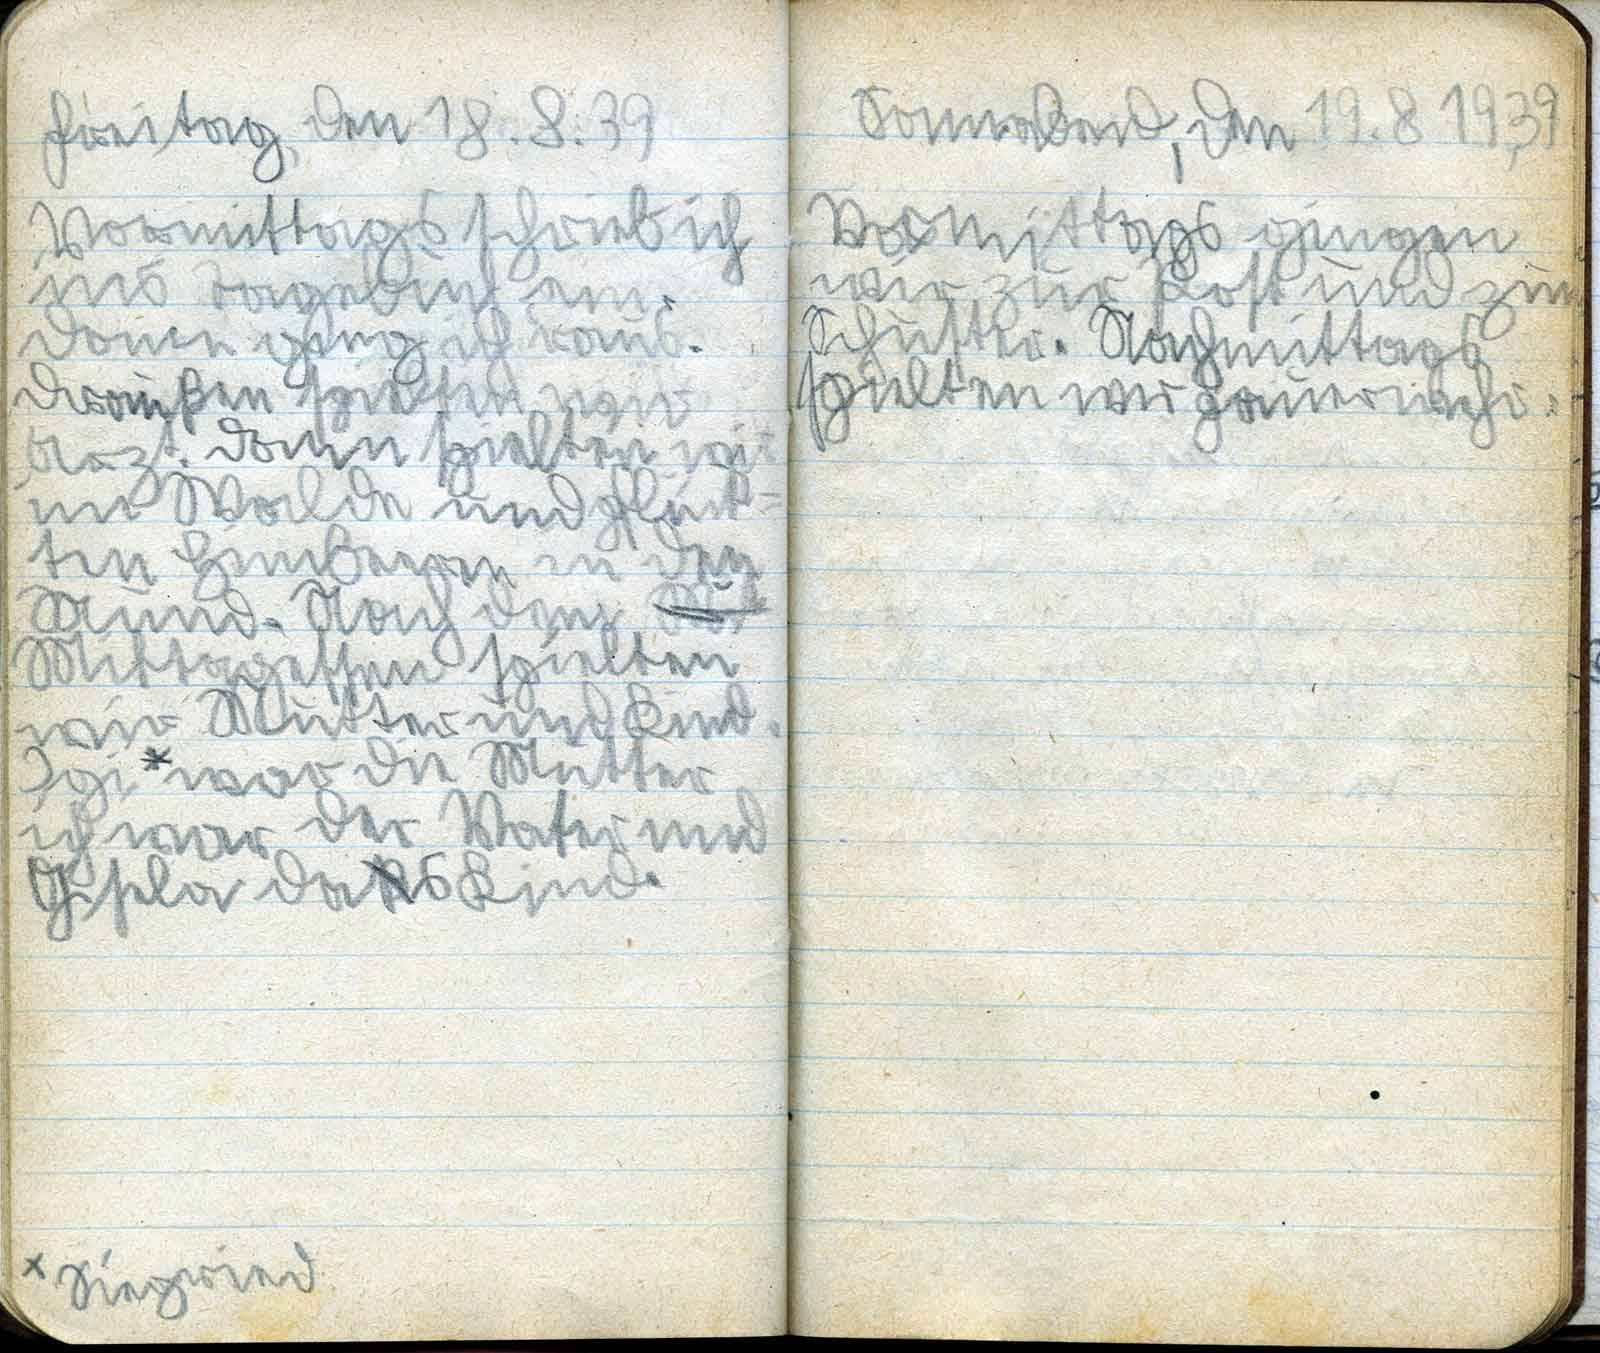 Freitag, den 18.8.39
Vormittags schrieb ich
ins Tagebuch ein.
Dann ging ich raus.
Draußen spielten wir
Arzt. Dann spielten wir
im Walde und pflück=
ten Himbeeren in den
Mund. Nach dem
Mittagessen spielten
wir Mutter und Kind.
Sigi * war die Mutter
ich war der Vater und
Gisela das Kind.
* Siegfried
Sonnabend, den 19.8 1939
Vormittags gingen
wir zur Post und zum
Schuster. Nachmittags
spielten wir Feuerwehr.